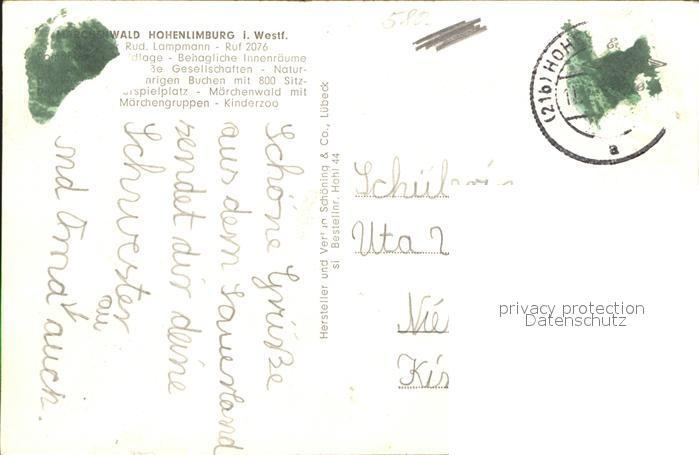 MÄRCHENWALD HOHENLIMBURG i. Westf.
Rud. Lampmann - Ruf 2076
dlage - Behagliche Innenräume
ße Gesellschaften - Natur-
rigen Buchen mit 800 Sitz-
rspielplatz - Märchenwald mit
Märchengruppen - Kinderzoo
Schöne Grüße
aus dem Sauerland
sendet dir deine
Schwester
und auch.
Hersteller und Verlag Schöning & Co., Lübeck
si Bestellnr. Hohl 44
(21b) HOH
a
Uta
Nie
Kis
privacy protection
Datenschutz